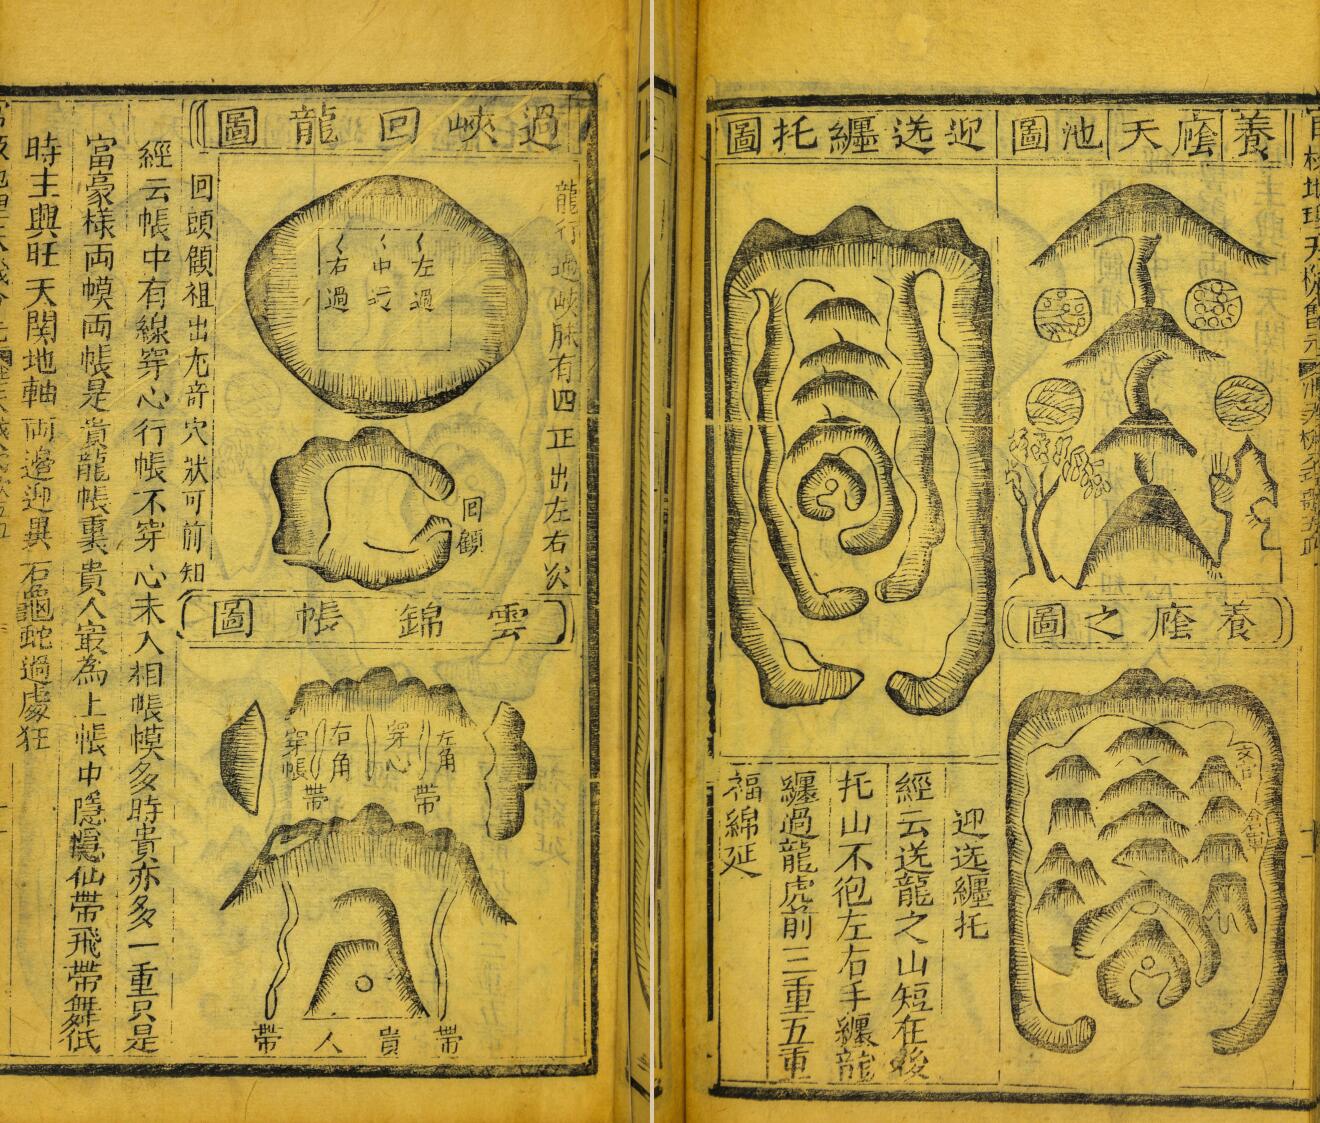 養廕天池圖
養廕之圖
迎送纏托圖
迎送纏托
經云送龍之山短在後
托山不抱左右手纏龍
纏過龍虎前三重五重
福綿延
過峽回龍圖
龍行過峽脉有四正出左右
左過
中行
右過
回顧
回頭顧祖出尤竒穴狀可前知
雲錦帳圖
左角
帶
穿心
右角
帶
穿帳
帶貴人帶
經云帳中有線穿心行帳不穿心未入相帳幙多時貴亦多一重只是
富豪樣両幙両帳是貴龍帳裏貴人最為上帳中隱隱仙帶飛帶舞低
時主興旺天関地軸両邉迎異石龜蛇過處狂